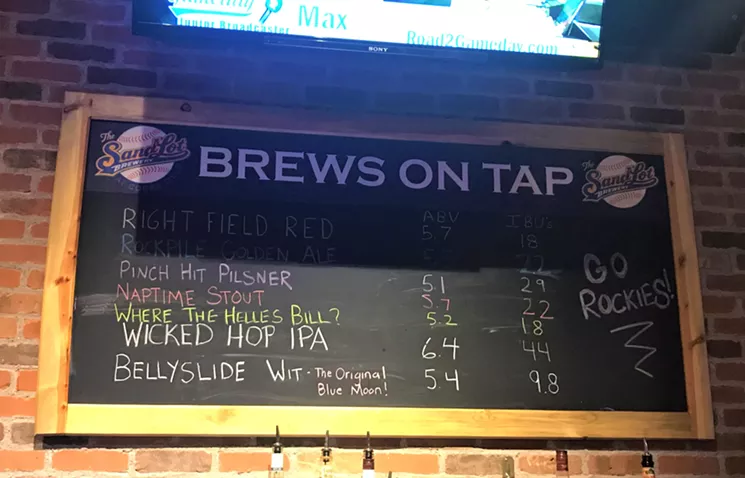 Max
Junior Broadcaster
Road2Gameday.com
SONY
The
SandLot
BREWERY
BREWS ON TAP
The
SandLot
BREWERY
ABV IBU's
RIGHT FIELD RED 5.7 18
ROCKPILE GOLDEN ALE 22
PINCH HIT PILSNER 5.1 29
NAPTIME STOUT 5.7 22
WHERE THE HELLES BILL? 5.2 18
WICKED HOP IPA 6.4 44
BELLYSLIDE WIT - The Original 5.4 9.8
Blue Moon!
GO
ROCKIES!